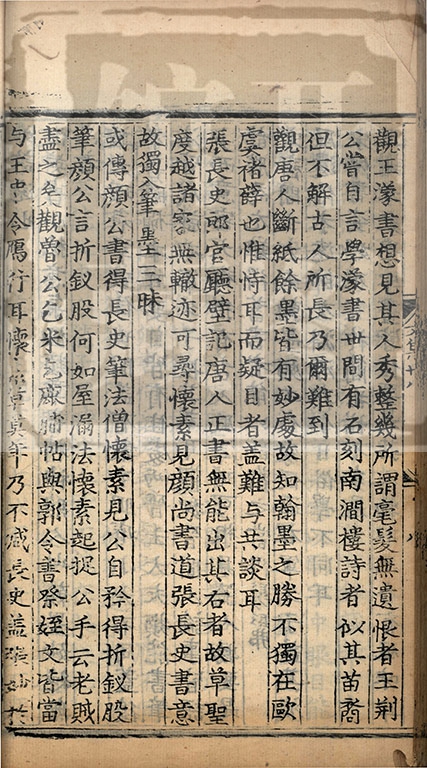 觀王濛書想見其人秀整幾所謂毫髮無遺恨者王荆
公嘗自言學濛書世間有石刻南澗樓詩者似其苗裔
但不解古人所長乃爾難到
觀唐人斷紙餘墨皆有妙處故知翰墨之勝不獨在歐
虞褚薛也惟恃耳而疑目者盖難與共談耳
張長史郎官廳壁記唐人正書無能出其右者故草聖
度越諸家無轍迹可尋懷素見顔尚書道張長史書意
故獨入筆墨三昧
或傳顔公書得長史筆法僧懷素見公自矜得折釵股
筆顔公言折釵股何如屋漏法懷素起捉公手云老賊
盡之矣觀魯公乞米乞鹿脯帖與郭令書祭姪文皆當
與王 今隅行耳懷 年乃不减長史盖張妙於